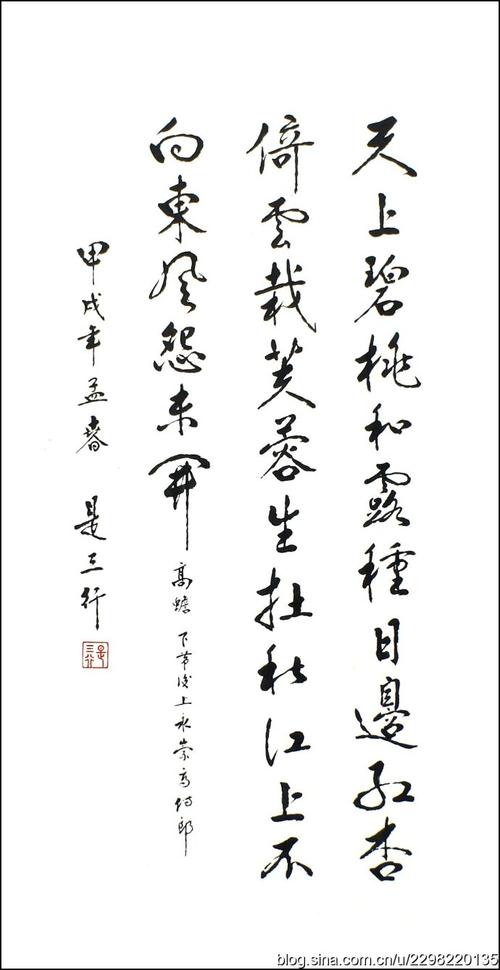 天上碧桃和露種日邊紅杏
倚雲栽芙蓉生在秋江上不
向東風怨未開
高蟾 下第後上永崇高侍郎
甲戌年孟春 是三行
是三行
blog.sina.com.cn/u/2298220135